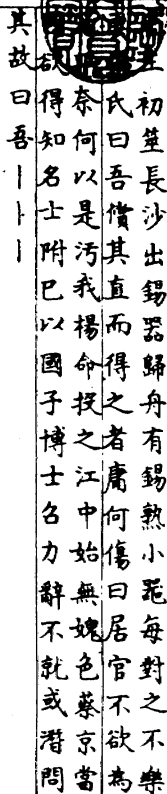 初筮長沙出錫器歸舟有錫熱小每對之不樂
氏曰吾償其直而得之者庸何傷曰居官不欲為
奈何以是污我楊命投之江中始無媿色蔡京當
欲得知名士附巳以國子博士召力辭不就或潛問
其故曰吾｜｜｜